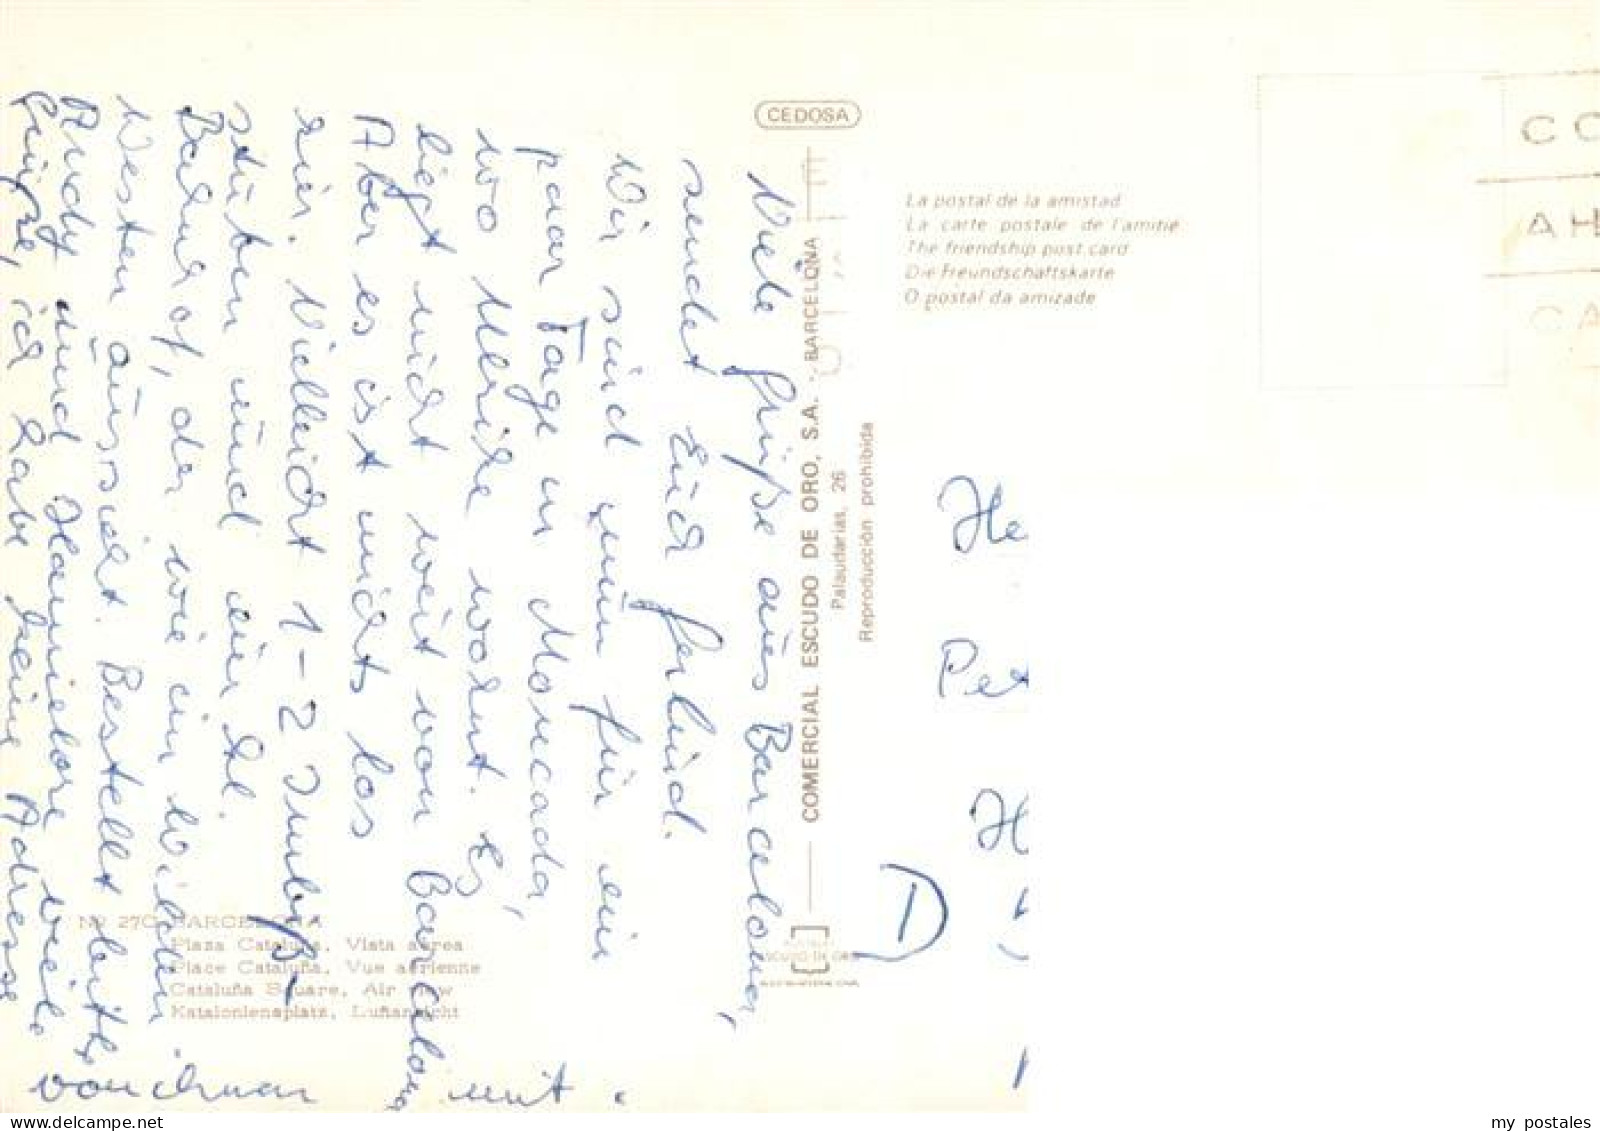 Viele Grüße aus Barcelona,
sendet Euch Gerlind.
Wir sind nun für ein
paar Tage in Moncada,
wo Ulrike wohnt. Es
liegt nicht weit von Barcelona
Aber es ist nichts los
hier. Vielleicht 1-2 Imbiß-
stuben und ein Htl.
Bahnhof, der wie ein Wilden
Westen aussieht. Bestellt bitte
Rudy und Hannelore viele
Grüße, ich habe keine Adresse
von ihnen mit.
CEDOSA
COMERCIAL ESCUDO DE ORO, S.A. - BARCELONA
Palaudarias, 26
Reproducción prohibida
La postal de la amistad
La carte postale de l'amitié
The friendship post card
Die Freundschaftskarte
O postal da amizade
CO
AH
CA
He
Pet
H
D
Nº 270 BARCELONA
Plaza Cataluña. Vista aérea
Place Cataluña. Vue aérienne
Cataluña Square. Air view
Katalonienplatz. Luftansicht
ESCUDO DE ORO
my postales